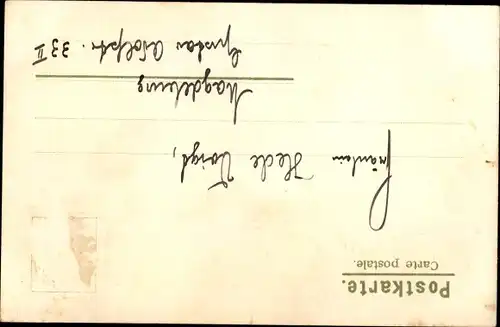 Postkarte.
Carte postale.
Fräulein Hede Voigt,
Magdeburg
Gustav Adolfstr. 33 II